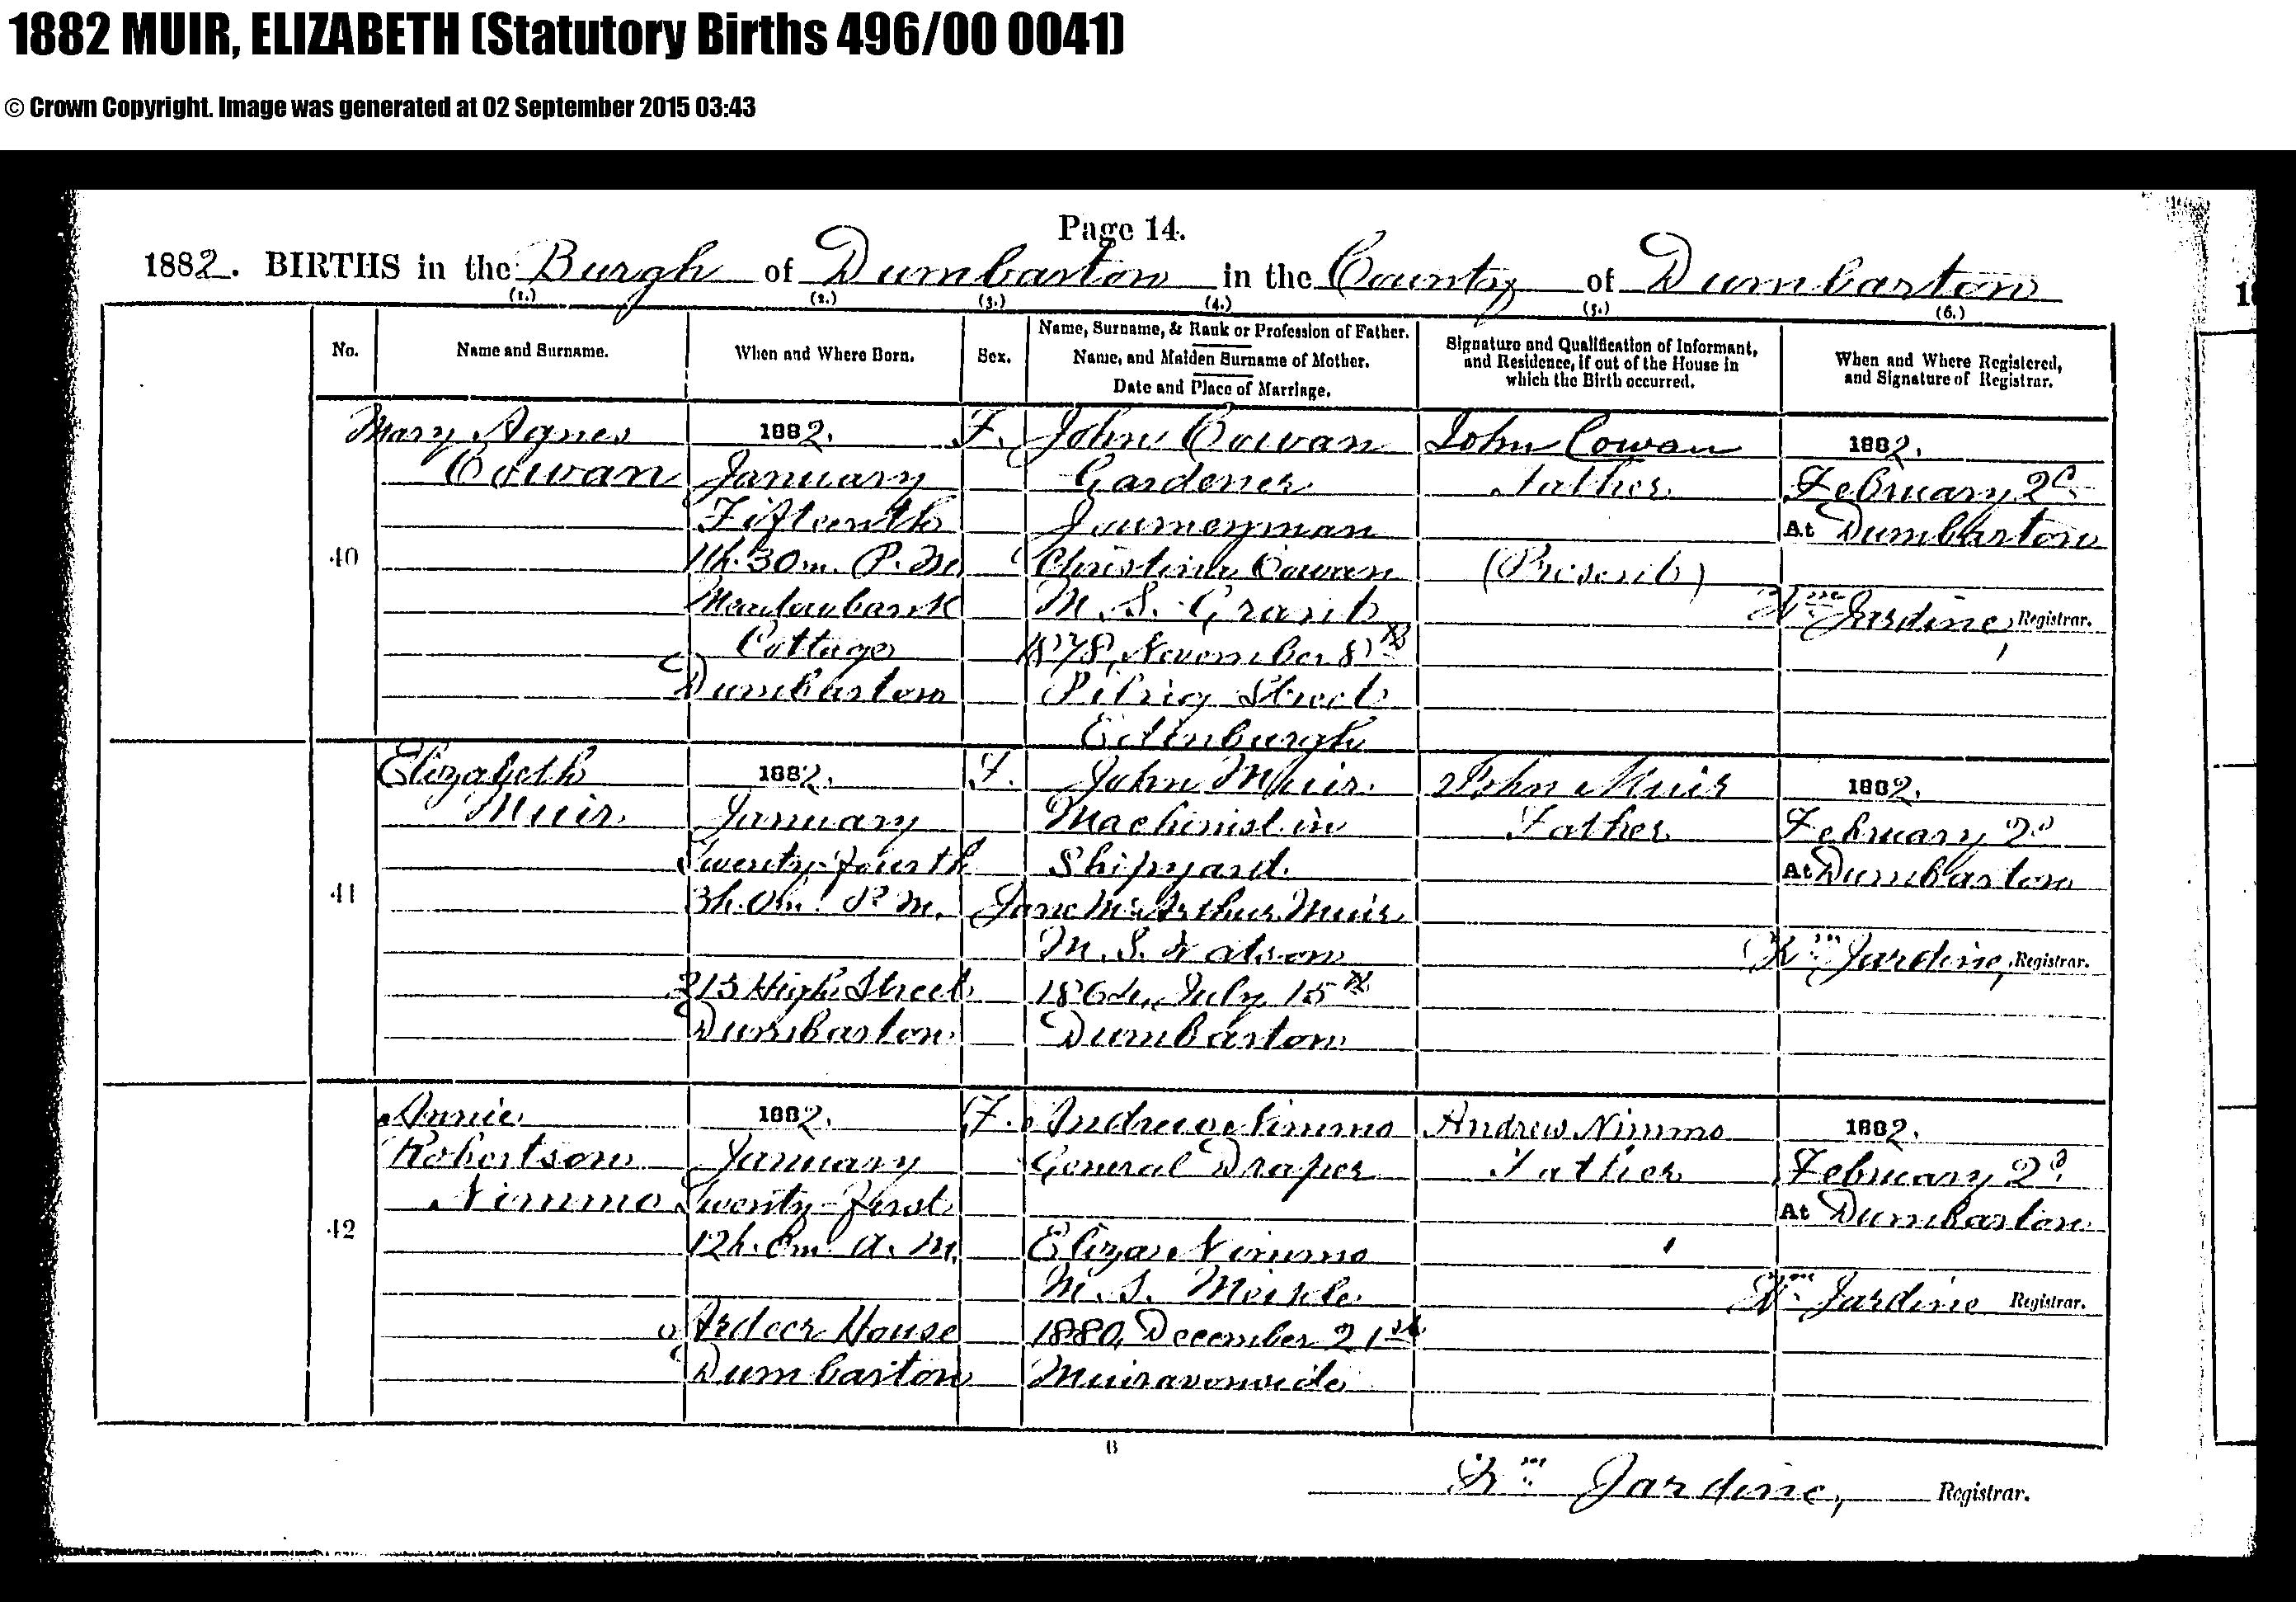 1882 MUIR, ELIZABETH (Statutory Births 496/00 0041)
© Crown Copyright. Image was generated at 02 September 2015 03:43
Page 14.
1882. BIRTHS in the Burgh of Dumbarton in the County of Dumbarton
(1.) (2.) (3.) (4.) (5.) (6.)
No.
Name and Surname.
When and Where Born.
Sex.
Name, Surname, & Rank or Profession of Father.
Name, and Maiden Surname of Mother.
Date and Place of Marriage.
Signature and Qualification of Informant,
and Residence, if out of the House in
which the Birth occurred.
When and Where Registered,
and Signature of Registrar.
40
Mary Agnes
Cowan
1882.
January
Fifteenth
11h. 30m. P.M.
Meadowbank
Cottage
Dumbarton
F.
John Cowan
Gardener
Journeyman
Christina Cowan
M.S. Grant
1878, November 8th
Pilrig Street
Edinburgh
John Cowan
Father
(Present)
1882.
February 2d
At Dumbarton
Wm Jardine, Registrar.
41
Elizabeth
Muir
1882.
January
Twenty-fourth
3h. 0m. P.M.
213 High Street
Dumbarton
F.
John Muir
Machinist in
Shipyard
Jane McArthur Muir
M.S. Watson
1864, July 15th
Dumbarton
John Muir
Father
1882.
February 2d
At Dumbarton
Wm Jardine, Registrar.
42
Annie
Robertson
Nimmo
1882.
January
Twenty-first
12h. 0m. A.M.
Ardeer House
Dumbarton
F.
Andrew Nimmo
General Draper
Eliza Nimmo
M.S. Meikle
1880, December 21st
Muiravonside
Andrew Nimmo
Father
1882.
February 2d
At Dumbarton
Wm Jardine Registrar.
B
Wm Jardine, Registrar.